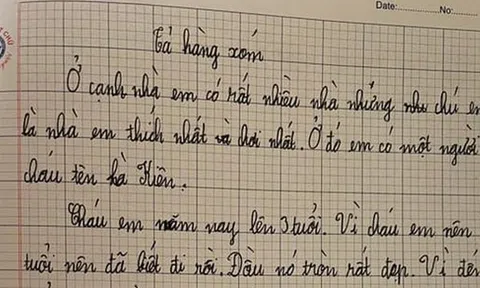 Date: No:
Tả hàng xóm
Ở cạnh nhà em có rất nhiều nhà nhưng như chú em
là nhà em thích nhất và chơi nhất. Ở đó em có một người
cháu tên là Hiền.
Cháu em năm nay lên 3 tuổi. Vì cháu em nên
tuổi nên đã biết đi rồi. Đầu nó tròn rất đẹp. Vì đến